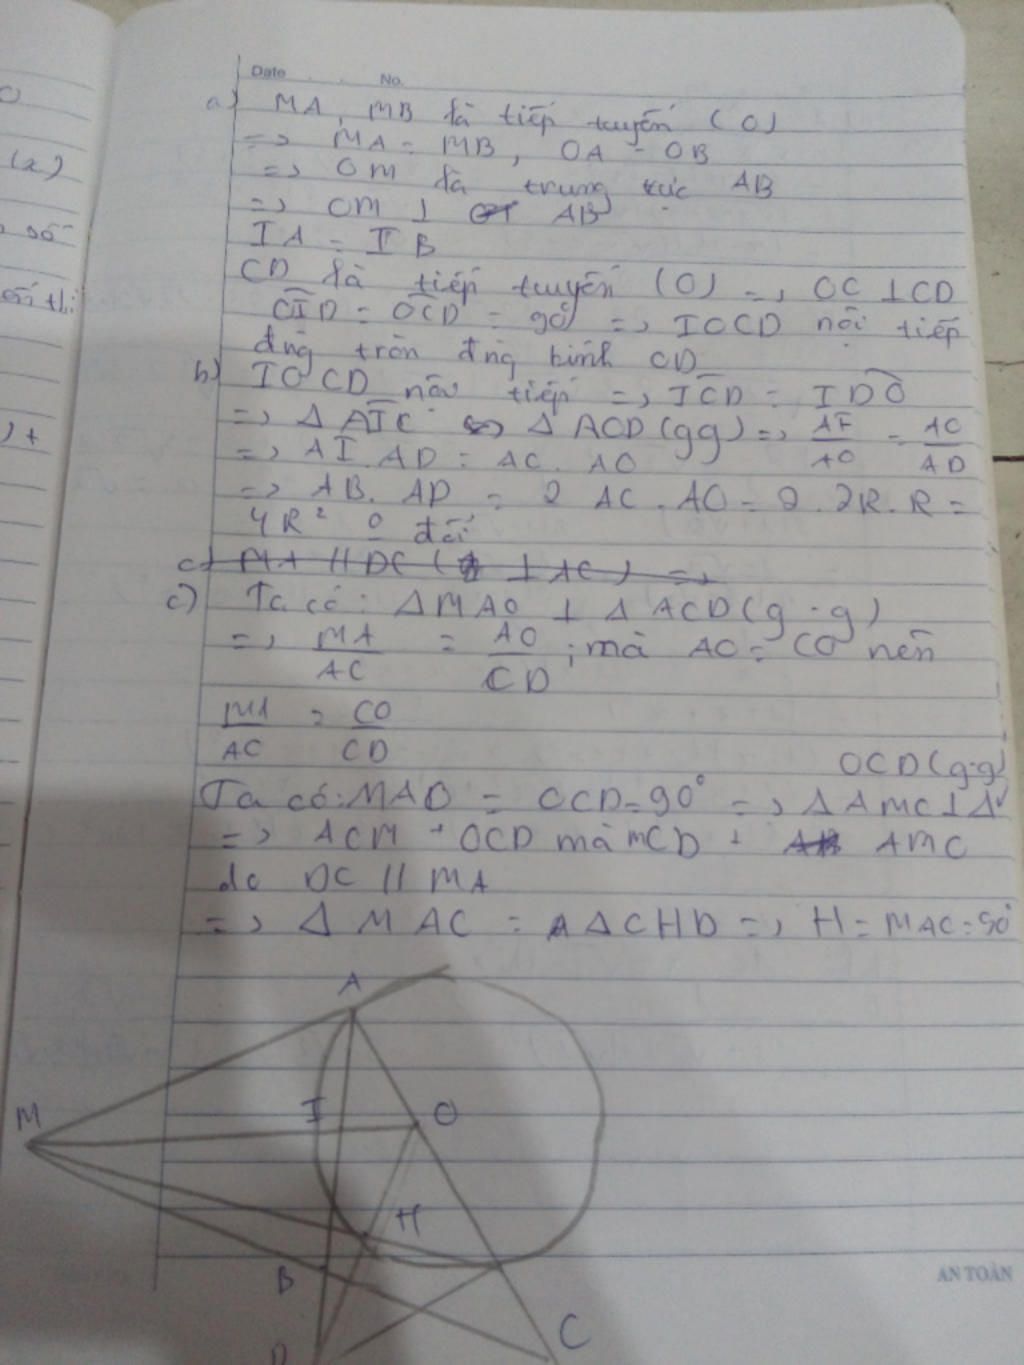 Date No.
a) MA, MB là tiếp tuyến (O)
=> MA = MB, OA = OB
=> OM là trung trực AB
=> OM ⊥ AB
IA = IB
CD là tiếp tuyến (O) => OC ⊥ CD
CID = OCD = 90° => IOCD nội tiếp
đng tròn đng kính CD
b) IOCD nội tiếp => ICD = IDO
=> Δ AIC ∽ Δ ACD (gg) => AI/AO = AC/AD
=> AI. AD = AC. AO
=> AB. AD = 2 AC. AO = 2. 2R. R =
4R² đổi
c) MA // DC ( ⊥ AC) =>
c) Ta có: Δ MAO ⊥ Δ ACD (g.g)
=> MA/AC = AO/CD ; mà AO = CO nên
MA/AC = CO/CD
OCD (g.g)
Ta có: MAO = OCD = 90° => Δ AMC ⊥ Δ
=> ACM + OCD mà MCD + AMC
do DC // MA
=> Δ MAC = Δ CHD => H = MAC = 90°
A
M
I
O
H
B
C
D
AN TOÀN
(2)
số